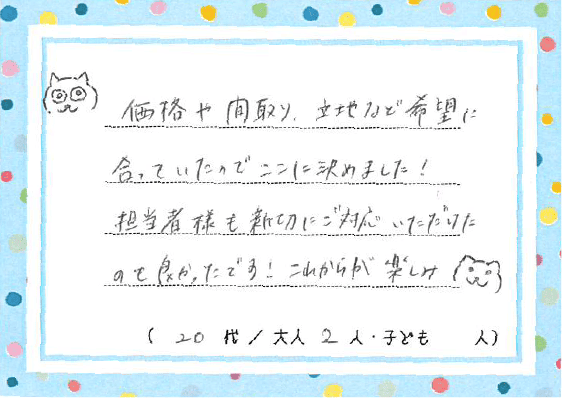 価格や間取り、立地など希望に
合っていたのでここに決めました!
担当者様も親切にご対応いただけた
のも良かったです!これからが楽しみ
( 20 代 / 大人 2 人・子ども 人)